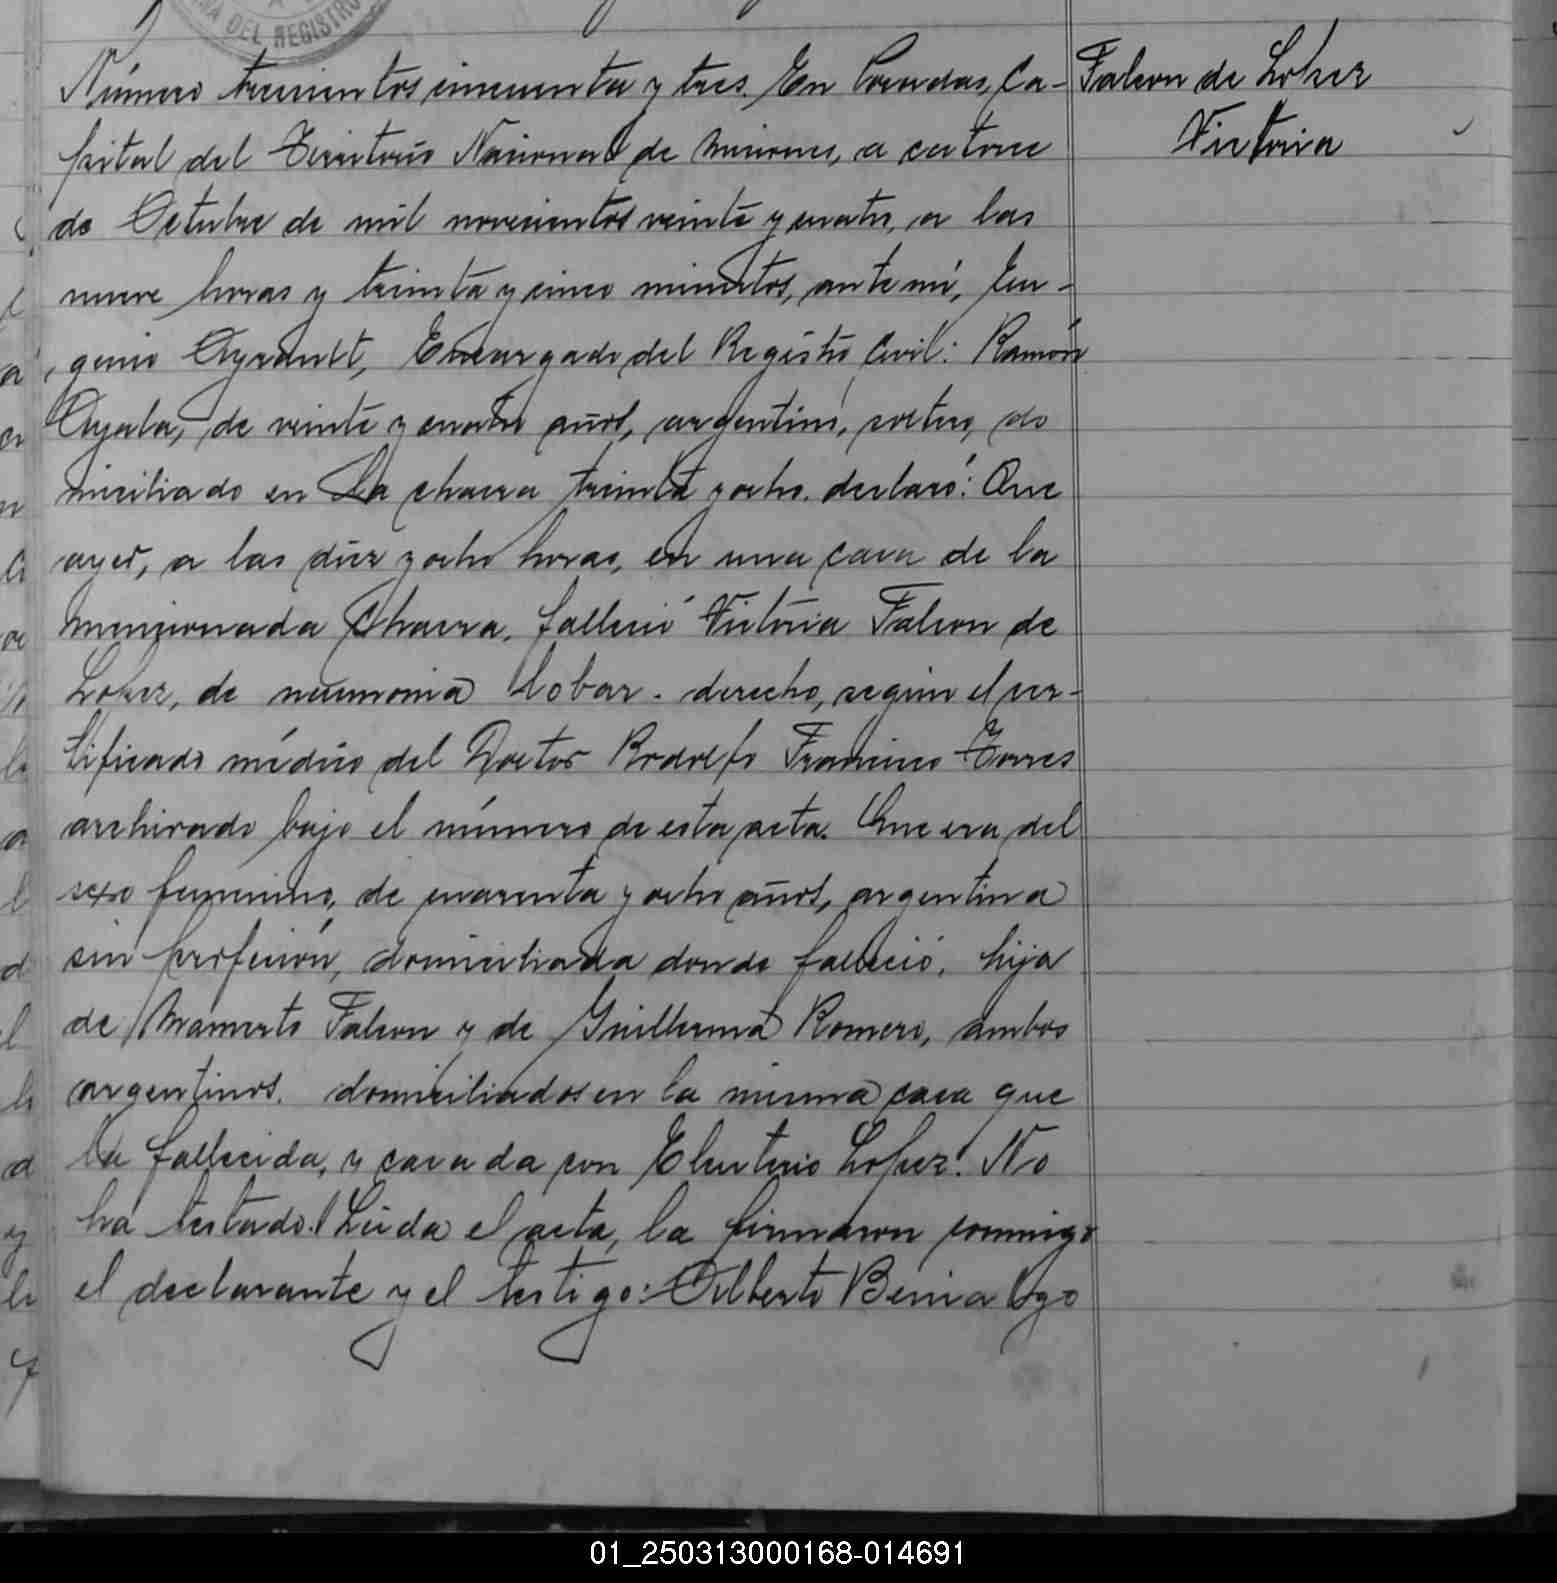 DEL REGISTRO
Número trescientos cincuenta y tres. En Posadas, Ca-
pital del Territorio Nacional de Misiones, a catorce
de Octubre de mil novecientos veinte y cuatro, a las
nueve horas y treinta y cinco minutos, ante mí, Eu-
genio Ayrault, Encargado del Registro Civil: Ramón
Ayala, de veinte y cuatro años, argentino, soltero, do
miciliado en La chacra treinta y ocho. declaró: Que
ayer, a las diez y ocho horas, en una casa de la
mencionada Chacra, falleció Victoria Falcon de
Lopez, de neumonia lobar. derecho, según el cer-
tificado médico del Doctor Rodolfo Francisco Torres
archivado bajo el número de esta acta. Que era del
sexo femenino, de cuarenta y ocho años, argentina
sin profesión, domiciliada donde falleció, hija
de Mamerto Falcon y de Guillerma Romero, ambos
argentinos. domiciliados en la misma casa que
la fallecida, y casada con Eleuterio Lopez. No
ha testado. Leida el acta, la firmaron conmigo
el declarante y el testigo: Gilberto
Falcon de Lopez
Victoria
01_250313000168-014691